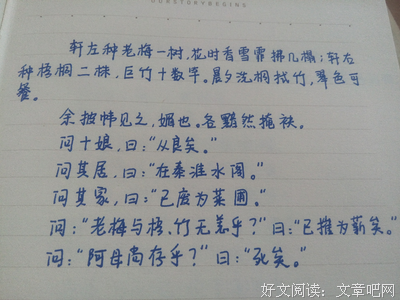 OURSTORYBEGIN
轩左种老梅一树,花时香雪霏拂几榻;轩右
种梧桐二株,巨竹十数竿。晨夕洗桐拭竹,翠色可
餐。
余披帏见之,媚也。各黯然掩袂。
问十娘,曰:“从良矣。”
问其居,曰:“在秦淮水阁。”
问其家,曰:“已废为菜圃。”
问:“老梅与梧、竹无恙乎?”曰:“已摧为薪矣。”
问:“阿母尚存乎?”曰:“死矣。”
好文阅读:文章吧网